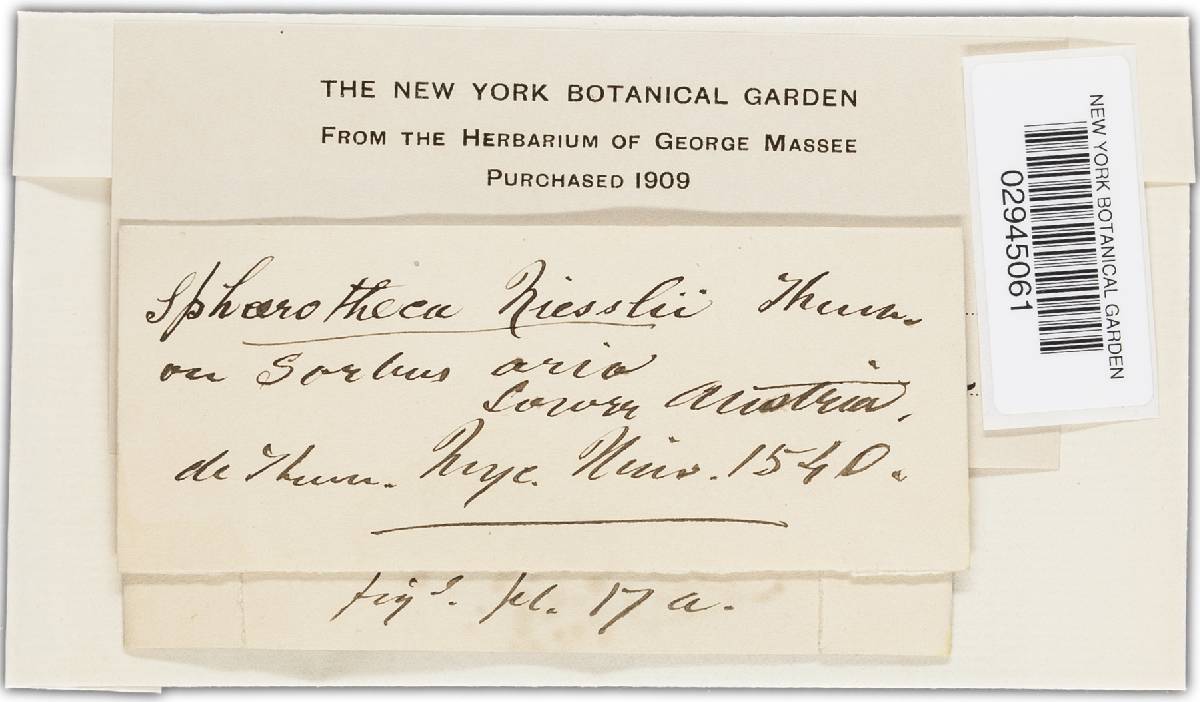 THE NEW YORK BOTANICAL GARDEN
FROM THE HERBARIUM OF GEORGE MASSEE
PURCHASED 1909
NEW YORK BOTANICAL GARDEN
02945061
Sphærotheca Niesslii Thum.
on Sorbus aria
Lower Austria.
de Thum. Myc. Univ. 1540.
figd. pl. 17 a.